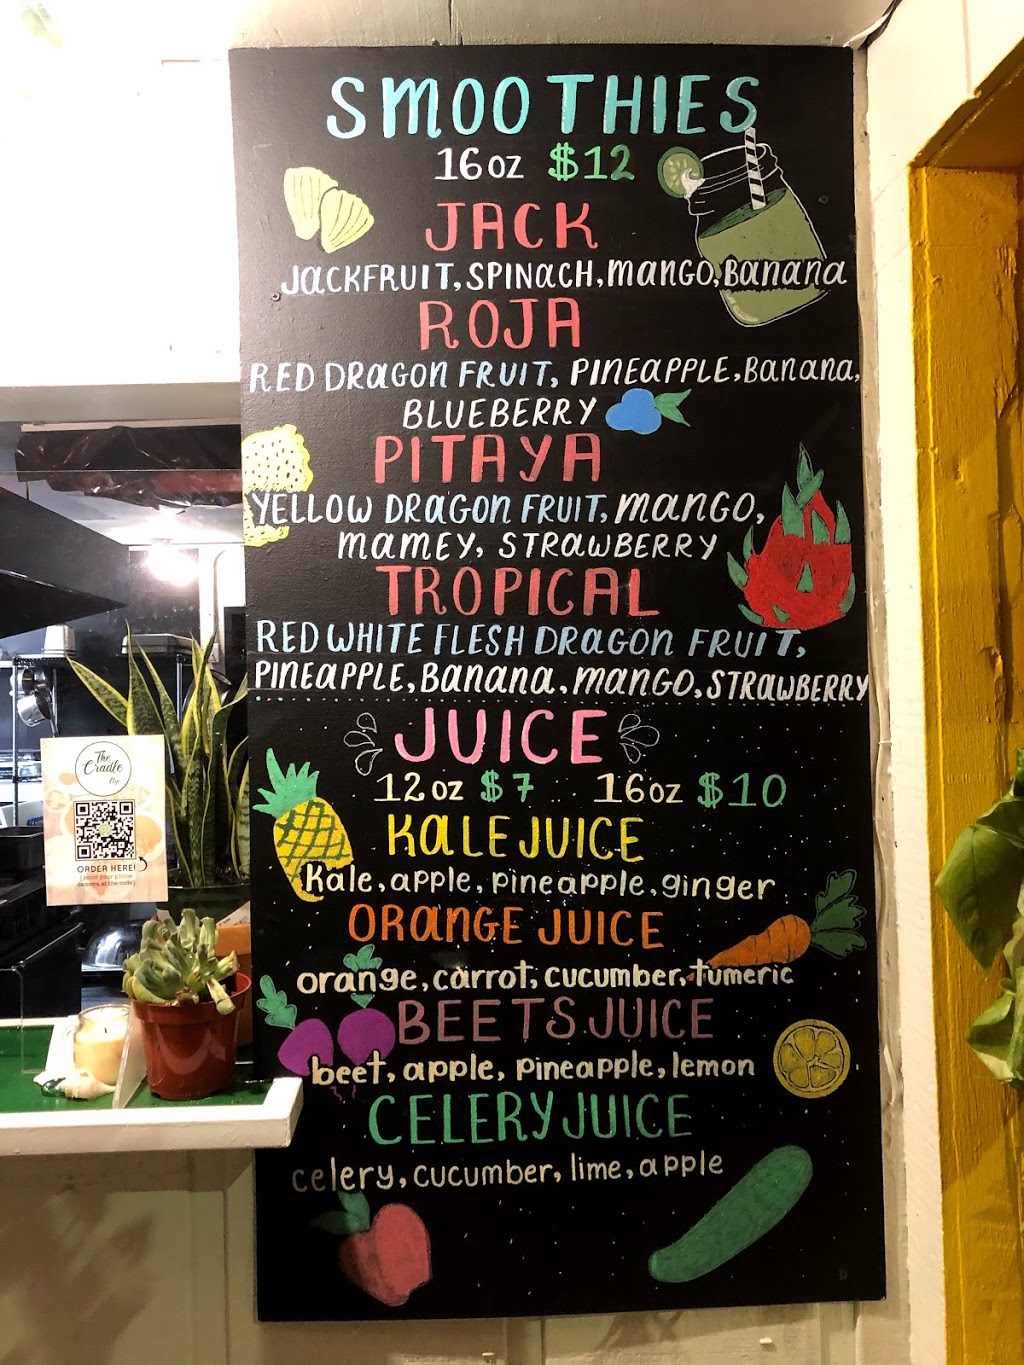 SMOOTHIES
16oz $12
JACK
JACKFRUIT, SPINACH, MANGO, BANANA
ROJA
RED DRAGON FRUIT, PINEAPPLE, BANANA,
BLUEBERRY
PITAYA
YELLOW DRAGON FRUIT, MANGO,
MAMEY, STRAWBERRY
TROPICAL
RED WHITE FLESH DRAGON FRUIT,
PINEAPPLE, BANANA, MANGO, STRAWBERRY
JUICE
12oz $7 16oz $10
KALE JUICE
Kale, apple, pineapple, ginger
ORANGE JUICE
orange, carrot, cucumber, tumeric
BEETS JUICE
beet, apple, pineapple, lemon
CELERY JUICE
celery, cucumber, lime, apple
The
Cradle
ORDER HERE!
[point your phone
camera at the code]